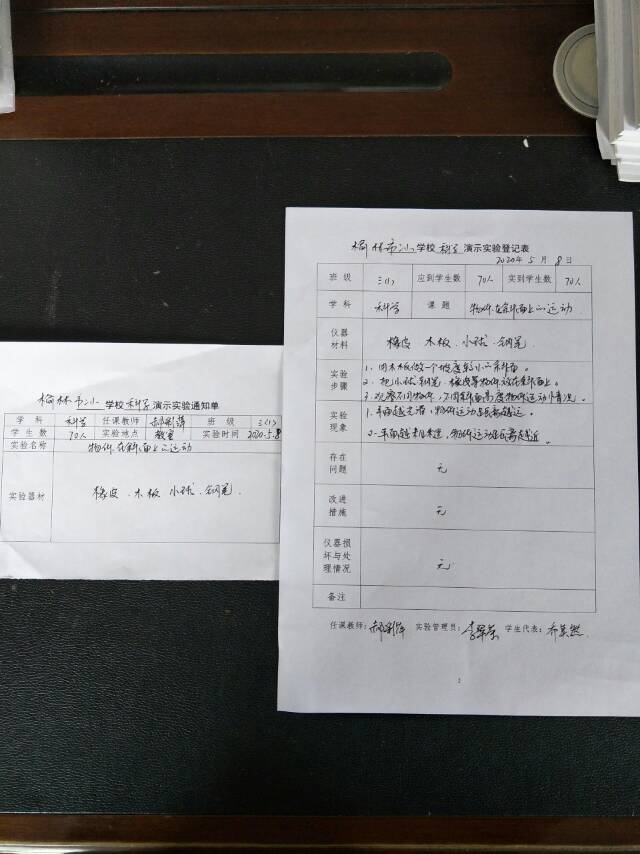 榆林市小学校科学演示实验通知单
学科 科学 任课教师 郝 班级 三(1)
学生数 70人 实验地点 教室 实验时间 2020.5.8
实验名称 物体在斜面上的运动
实验器材 橡皮、木板、小球、钢笔.
榆林市小学校科学演示实验登记表
2020年5月8日
班级 三(1) 应到学生数 70人 实到学生数 70人
学科 科学 课题 物体在斜面上的运动
仪器材料 橡皮 木板、小球、钢笔
实验步骤 1、用木板做一个坡度较小的斜面。
2、把小球、钢笔、橡皮等物体放在斜面上。
3、观察不同物体、不同斜面高度物体运动情况。
实验现象 1、平面越光滑,物体运动距离越远。
2、平面越粗糙,物体运动距离越近。
存在问题 无
改进措施 无
仪器损坏与处理情况 无
备注
任课教师:郝 实验管理员:李 学生代表:乔
1